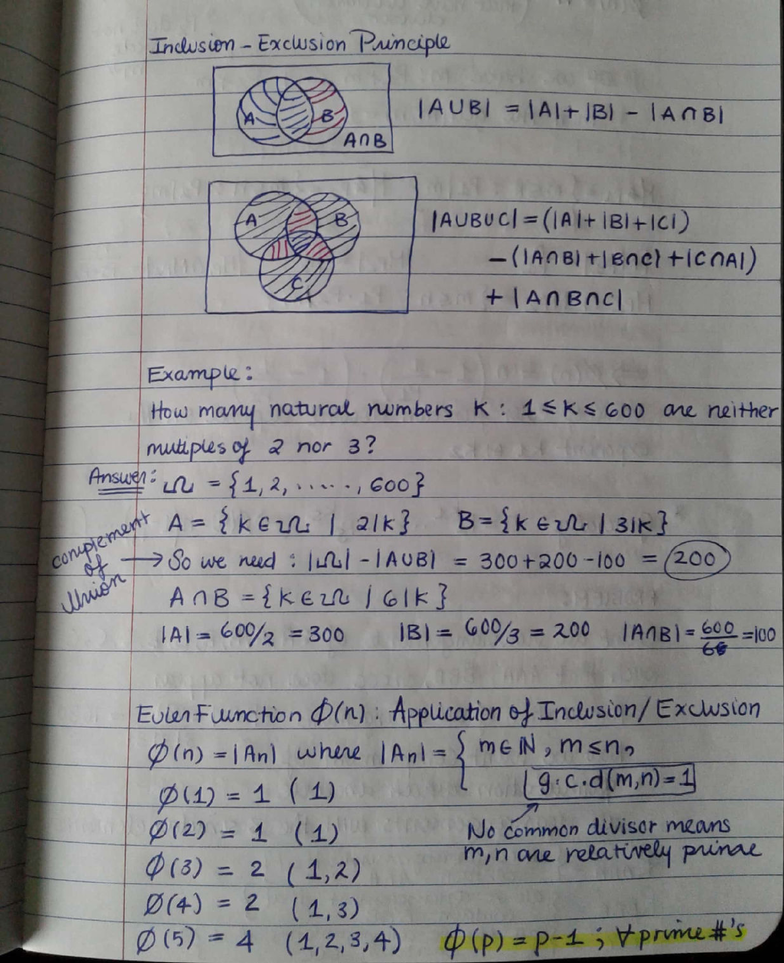 Inclusion-Exclusion Principle
A B A∩B
|A∪B| = |A|+|B| - |A∩B|
A B C
|A∪B∪C| = (|A|+|B|+|C|)
-(|A∩B|+|B∩C|+|C∩A|)
+ |A∩B∩C|
Example:
How many natural numbers K : 1≤K≤600 are neither
mutiples of 2 nor 3?
Answer: Ω = {1,2,.....,600}
A = {K∈Ω | 2|K} B={K∈Ω | 3|K}
complement of Union → So we need : |Ω| - |A∪B| = 300+200-100 = 200
A∩B = {K∈Ω | 6|K}
|A| = 600/2 = 300 |B| = 600/3 = 200 |A∩B| = 600/6 = 100
Euler Function Φ(n) : Application of Inclusion/Exclusion
Φ(n) = |An| where |An| = { m∈ℕ, m≤n,
| g.c.d(m,n)=1
Φ(1) = 1 (1)
Φ(2) = 1 (1)
No common divisor means
m,n are relatively prime
Φ(3) = 2 (1,2)
Φ(4) = 2 (1,3)
Φ(5) = 4 (1,2,3,4) Φ(p) = p-1 ; ∀ prime #'s